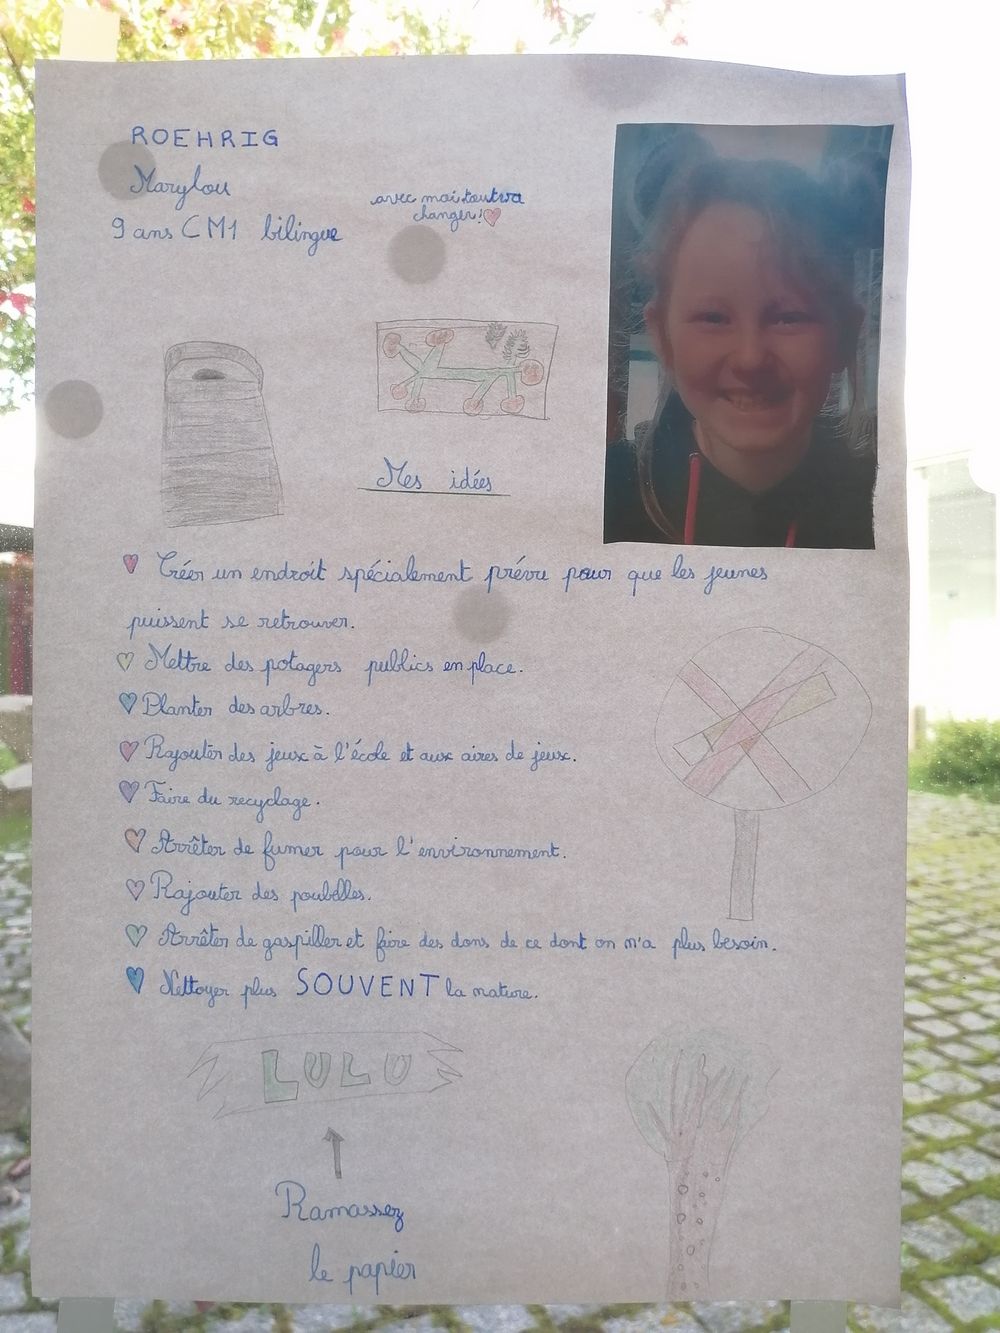 ROEHRIG
Marylou
9 ans CM1 bilingue
avec moi tout va
changer!
Mes idées
Créer un endroit spécialement prévu pour que les jeunes
puissent se retrouver.
Mettre des potagers publics en place.
Planter des arbres.
Rajouter des jeux à l'école et aux aires de jeux.
Faire du recyclage.
Arrêter de fumer pour l'environnement.
Rajouter des poubelles.
Arrêter de gaspiller et faire des dons de ce dont on n'a plus besoin.
Nettoyer plus SOUVENT la nature.
LULU
Ramassez
le papier